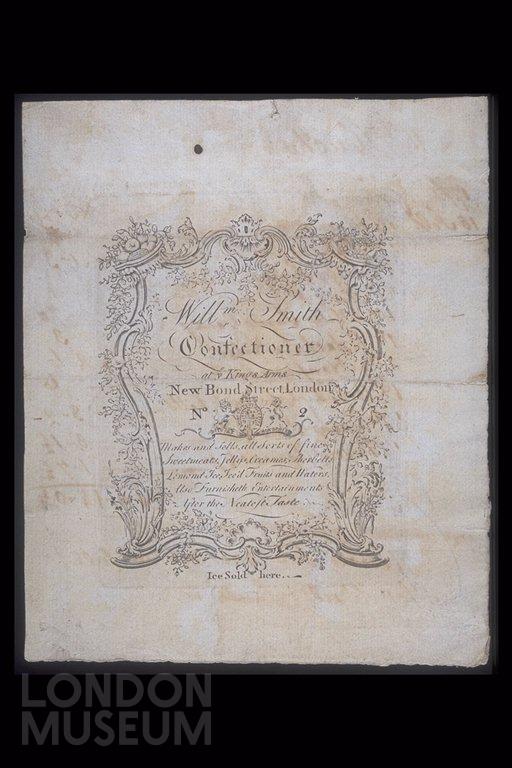 Will.m Smith
Confectioner
at ye Kings Arms
New Bond Street, London
No. 2
Makes and Sells, all Sorts of fine
Sweetmeats, Jellys, Creames, Sherbetts,
Lemond Ice, Ice'd Fruits and Waters,
Also Furnisheth Entertainments
After the Neatest Taste
Ice Sold here.
LONDON
MUSEUM